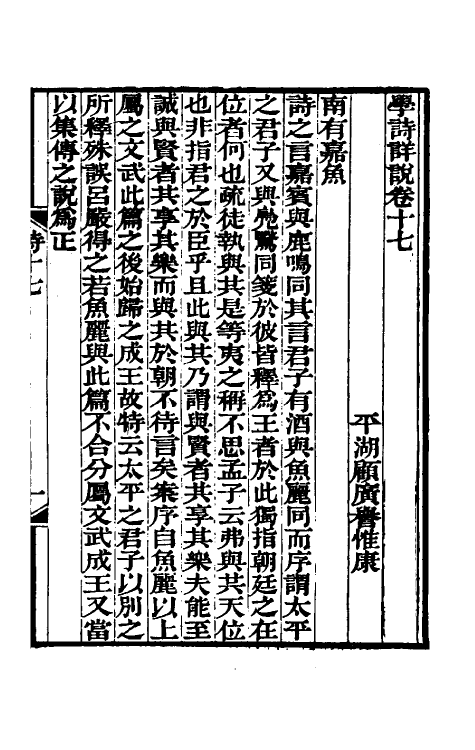 學詩詳說卷十七
平湖顧廣譽惟康
南有嘉魚
詩之言嘉賓與鹿鳴同其言君子有酒與魚麗同而序謂太平
之君子又與鳧鷖同箋於彼皆釋為王者於此獨指朝廷之在
位者何也疏徒執與其是等夷之稱不思孟子云弗與共天位
也非指君之於臣乎且此與其乃謂與賢者共享其樂夫能至
誠與賢者共享其樂而與共於朝不待言矣案序自魚麗以上
屬之文武此篇之後始歸之成王故特云太平之君子以別之
所釋殊誤呂嚴得之若魚麗與此篇不合分屬文武成王又當
以集傳之說為正
詩十七
一